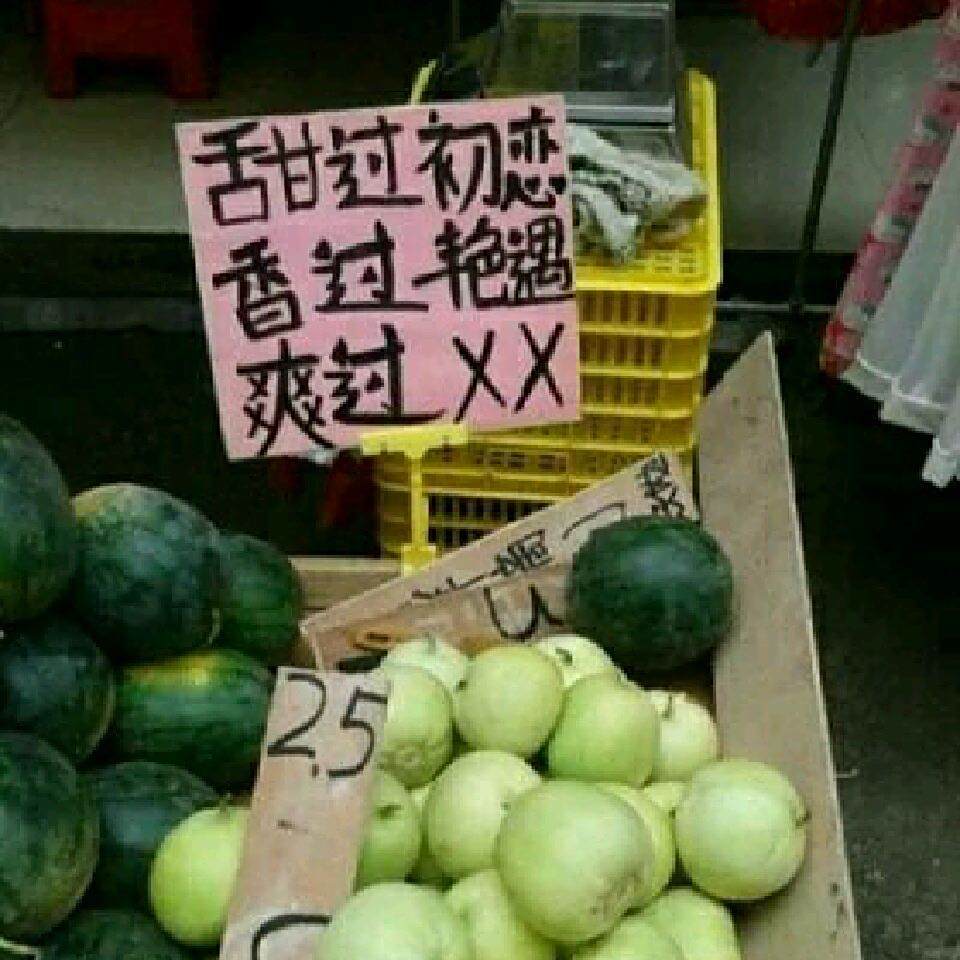 甜过初恋
香过艳遇
爽过XX
2.5